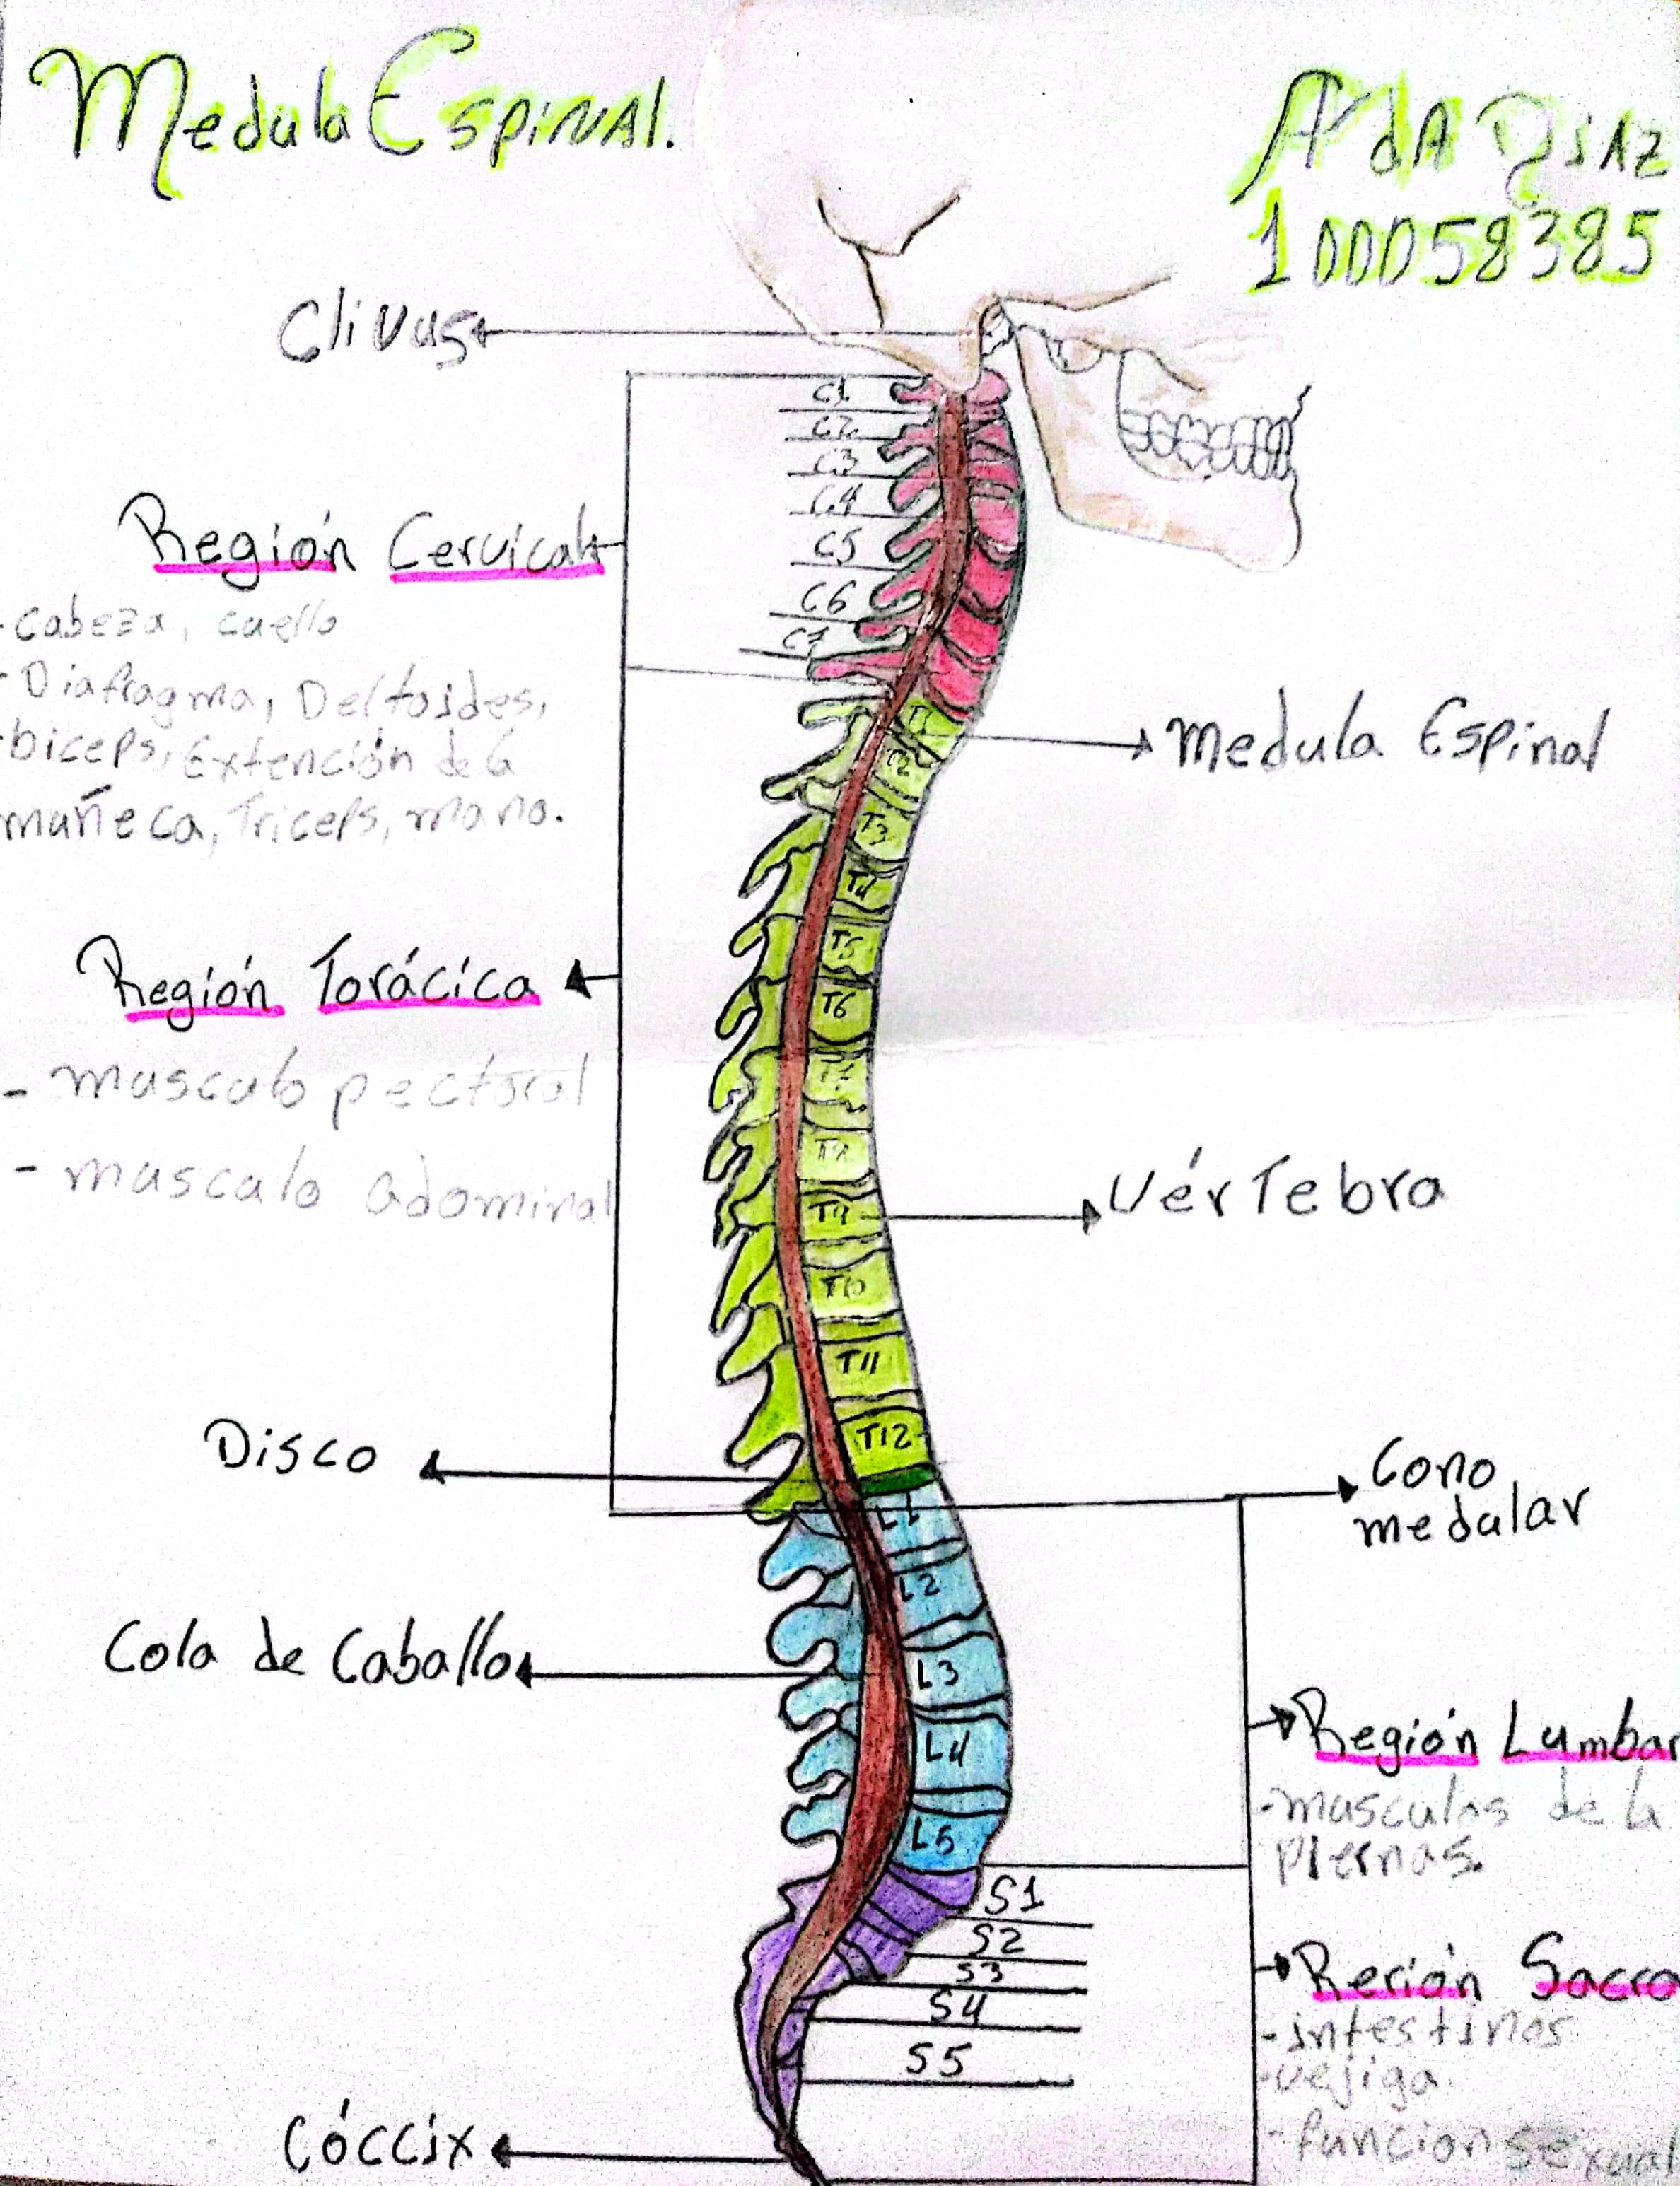 Medula Espinal.
AidA DiAz
100058385
Clivus
C1
C2
C3
C4
C5
C6
C7
Región Cervical
- Cabeza, cuello
- Diafragma, Deltoides,
- biceps, Extención de la
muñeca, Triceps, mano.
T1
T2
T3
T4
T5
T6
T7
T9
T10
T11
T12
Medula Espinal
Región Torácica
- musculo pectoral
- musculo adominal
Vértebra
Disco
Cono
medular
L1
L2
L3
L4
L5
Cola de Caballo
Región Lumbar
- musculos de la
piernas.
S1
S2
S3
S4
S5
Reción Sacro
- intestinos
- vejiga.
- funcion sexual
Cóccix